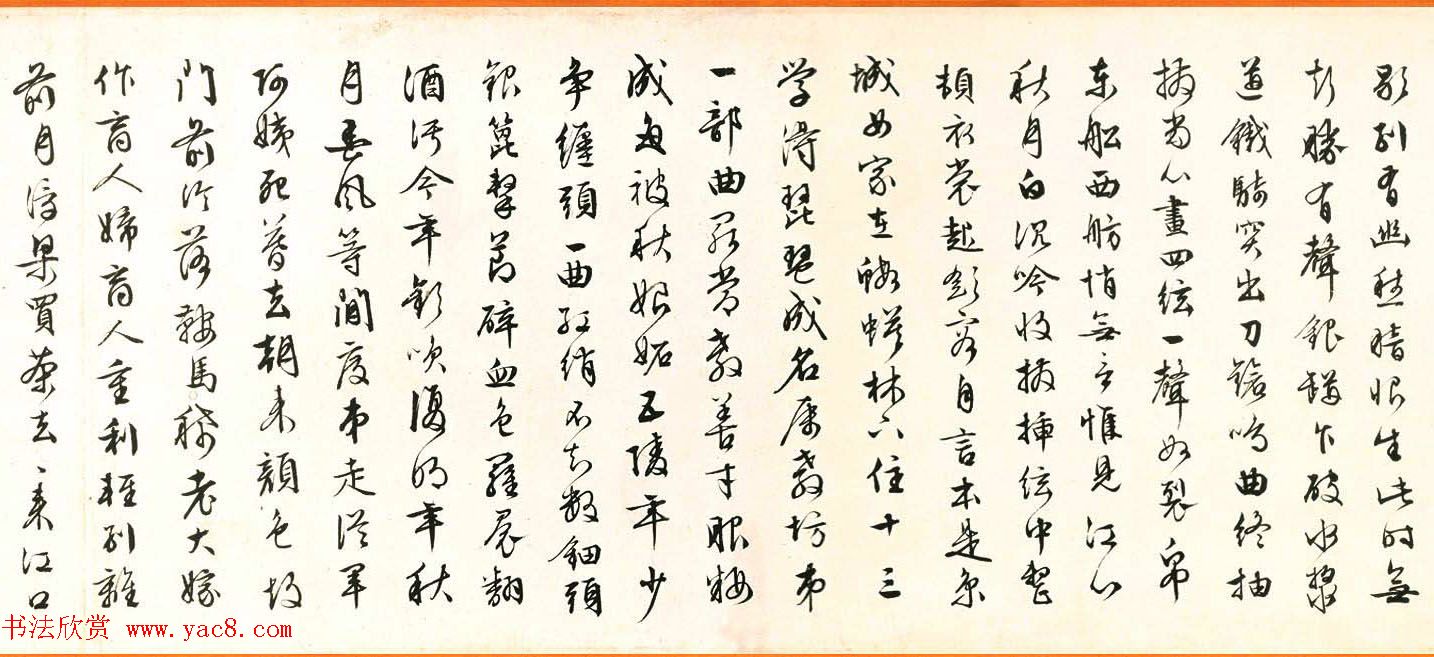 歇别有幽愁暗恨生此时無
声勝有聲銀缾乍破水漿
迸鐵騎突出刀鎗鳴曲終抽
撥當心畫四絃一聲如裂帛
東船西舫悄無言惟見江心
秋月白沉吟收撥插絃中整
頓衣裳起斂容自言本是京
城女家在蝦蟆林下住十三
学得琵琶成名属教坊第
一部曲罷常教善才服粧
成每被秋娘妬五陵年少
争纏頭一曲紅綃不知数鈿頭
銀篦擊節碎血色羅裙翻
酒污今年歡笑復明年秋
月春風等閒度弟走從軍
阿姨死暮去朝来顔色故
門前冷落鞍馬稀老大嫁
作商人婦商人重利輕别離
前月浮梁買茶去々来江口
书法欣赏 www.yac8.com